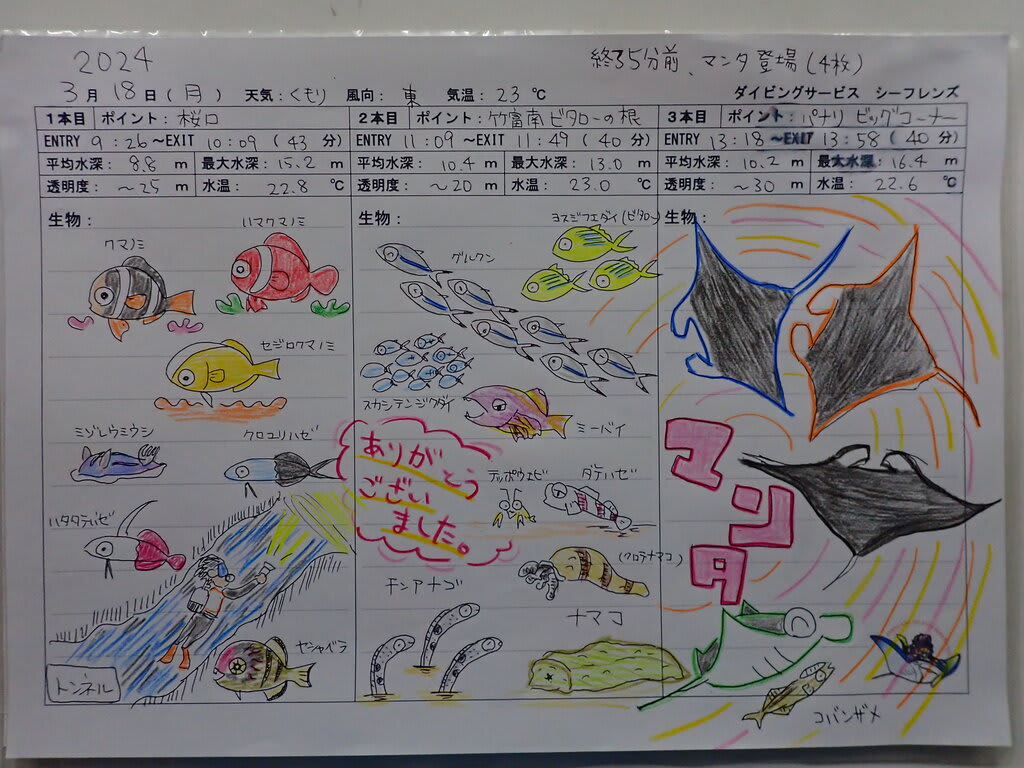 2024
終了5分前、マンタ登場(4枚)
3月18日(月) 天気:くもり 風向:東 気温:23℃ ダイビングサービス シーフレンズ
1本目 ポイント:桜口
ENTRY 9:26~EXIT 10:09(43分)
平均水深:8.8m 最大水深:15.2m
透明度:~25m 水温:22.8℃
生物:
クマノミ
ハマクマノミ
セジロクマノミ
ミゾレウミウシ
クロユリハゼ
ハタタテハゼ
トンネル
ヤシャベラ
2本目 ポイント:竹富南ビタローの根
ENTRY 11:09~EXIT 11:49(40分)
平均水深:10.4m 最大水深:13.0m
透明度:~20m 水温:23.0℃
生物:
ヨスジフエダイ(ビタロー)
グルクン
スカシテンジクダイ
ミーバイ
ありがとう
ござい
ました。
テッポウエビ
ダテハゼ
(クロテナマコ)
チンアナゴ
ナマコ
3本目 ポイント:パナリ ビッグコーナー
ENTRY 13:18~EXIT 13:58(40分)
平均水深:10.2m 最大水深:16.4m
透明度:~30m 水温:22.6℃
生物:
マンタ
コバンザメ